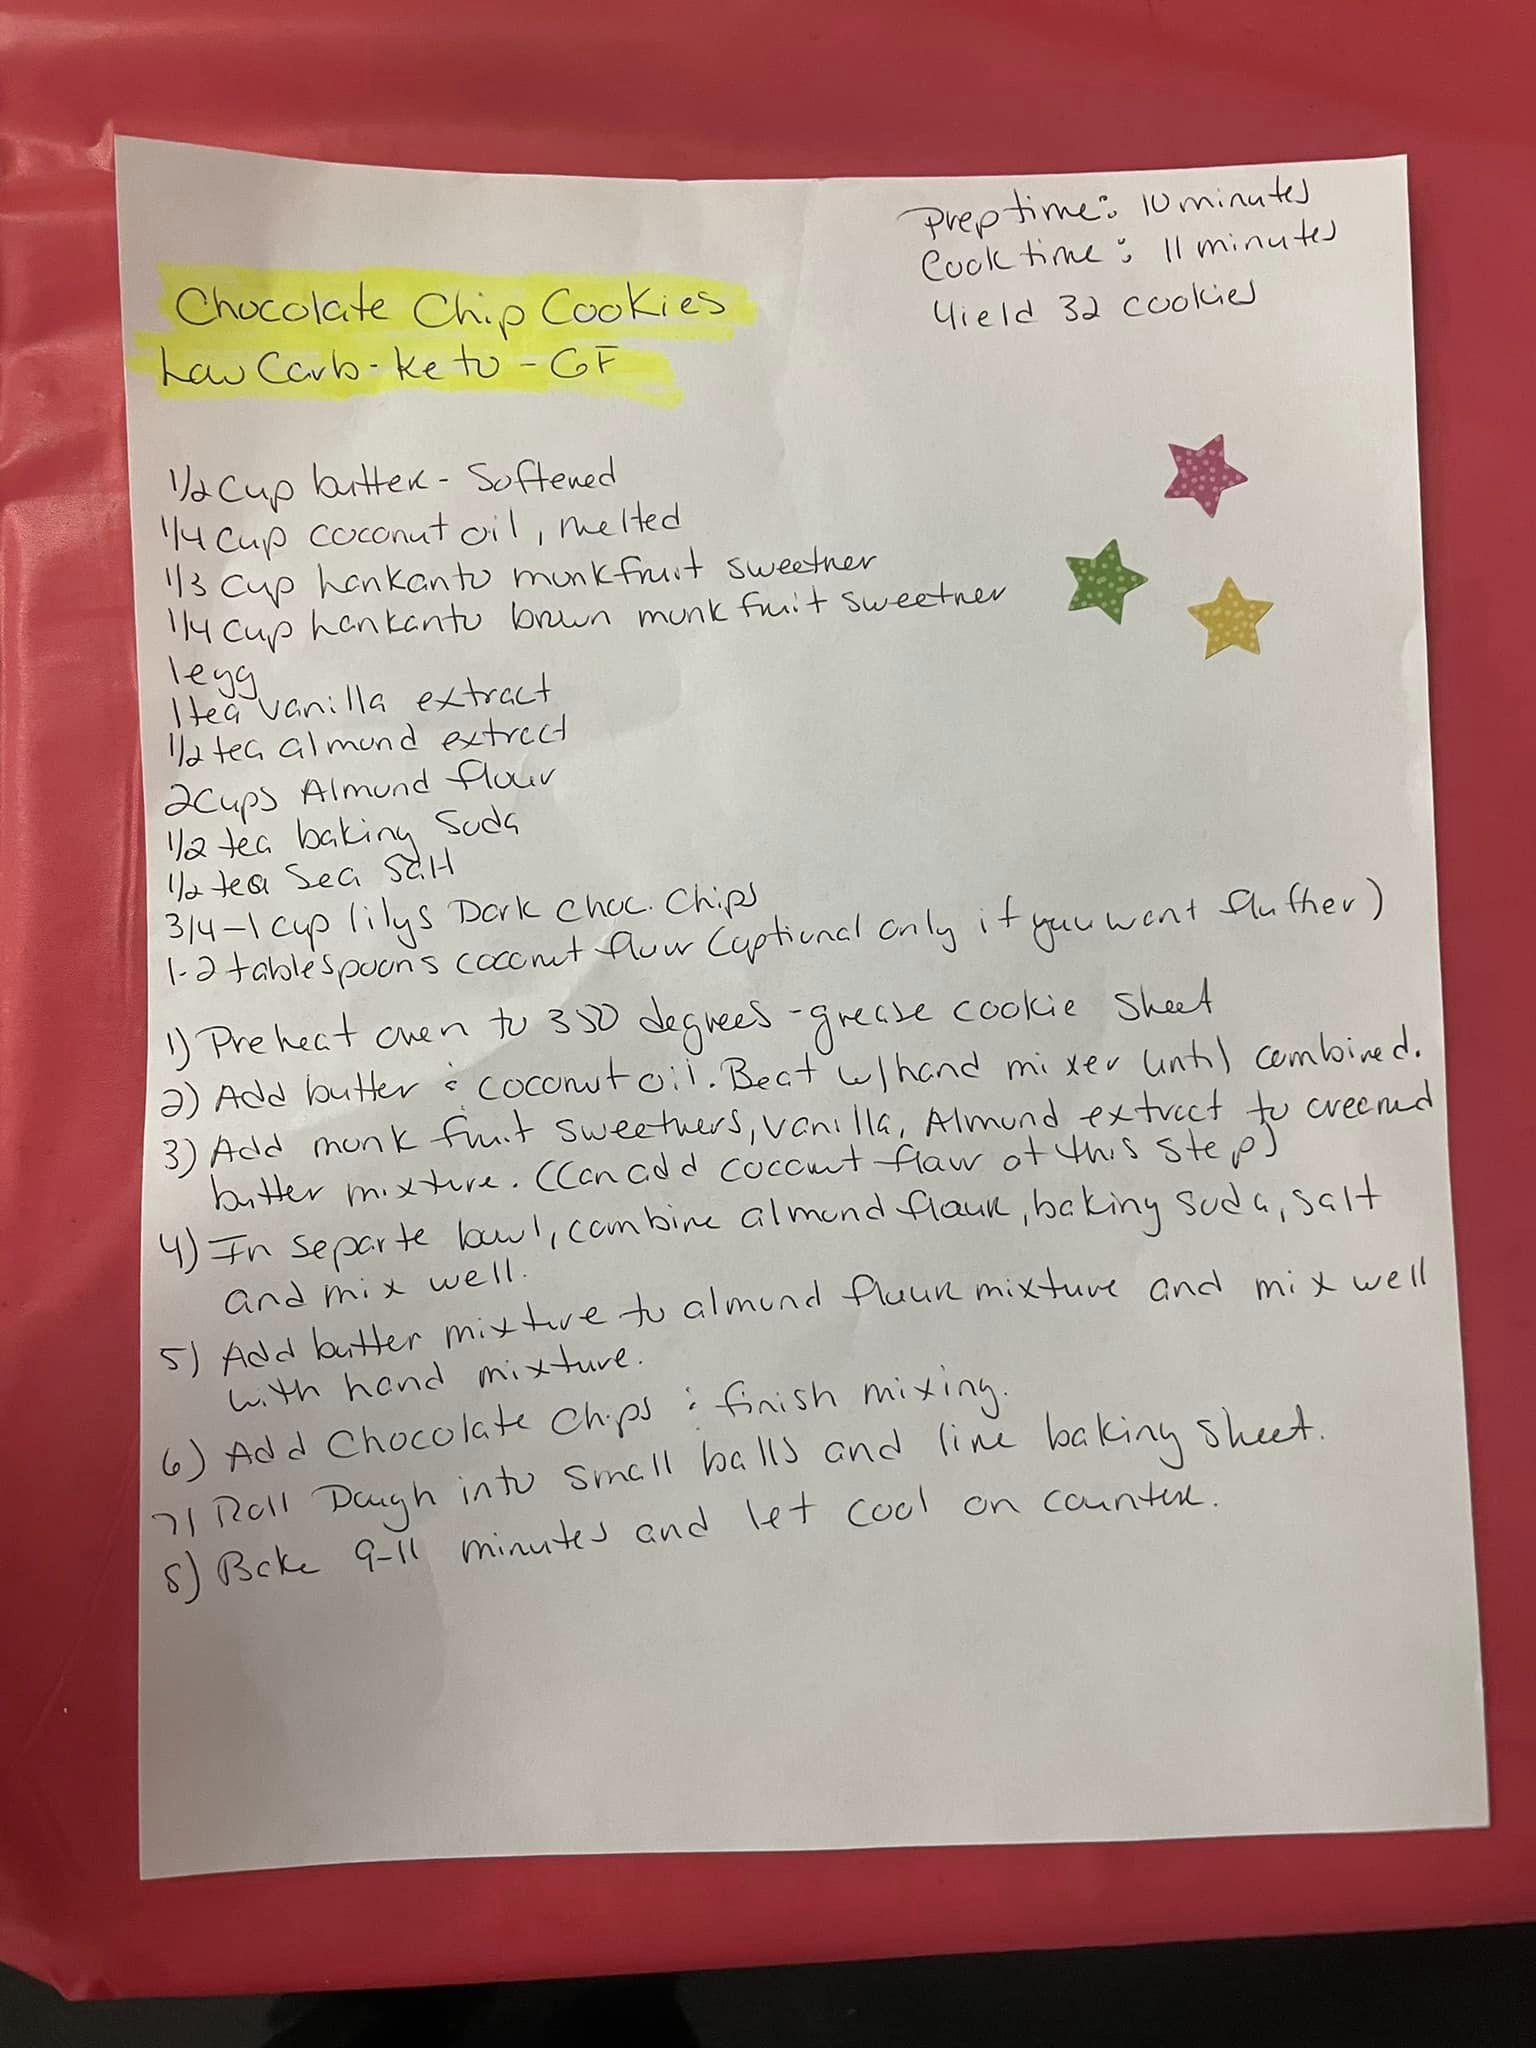 Prep time: 10 minutes
Cook time: 11 minutes
Yield 32 cookies
Chocolate Chip Cookies
Low Carb-Keto-GF
1/2 cup butter - Softened
1/4 cup coconut oil, melted
1/3 cup hankanto monkfruit sweetner
1/4 cup hankanto brown monk fruit sweetner
1 egg
1 tea vanilla extract
1/2 tea almond extract
2 cups Almond flour
1/2 tea baking Soda
1/2 tea Sea Salt
3/4-1 cup lilys Dark choc. Chips
1-2 tablespoons coconut flour (optional only if you want fluffher)
1) Preheat oven to 350 degrees - grease cookie sheet
2) Add butter & coconut oil. Beat w/hand mixer until combined.
3) Add monk fruit sweetners, vanilla, Almond extract to creamed
butter mixture. (Can add coconut flour at this step)
4) In separte bowl, combine almond flour, baking soda, salt
and mix well.
5) Add butter mixture to almond flour mixture and mix well
with hand mixture.
6) Add Chocolate Chips & finish mixing.
7) Roll Dough into small balls and line baking sheet.
8) Bake 9-11 minutes and let cool on counter.